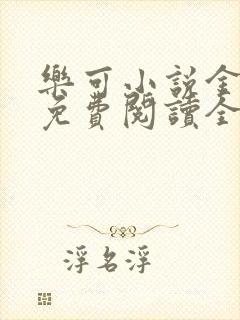 樂可小說全
免費閱讀全
浮名浮